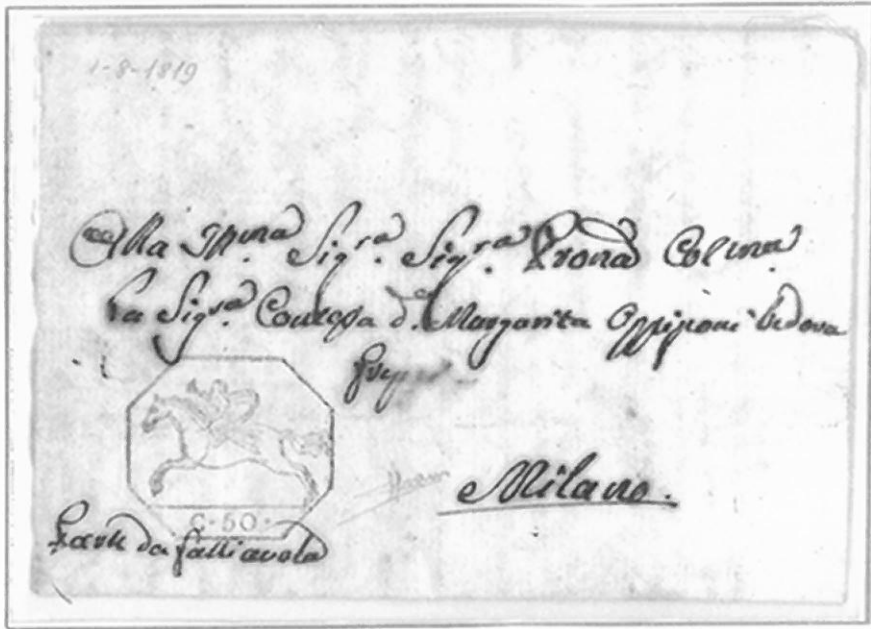 1-8-1819
Alla Ill.ma Sig.ra Sig.ra Prona Colma
La Sig.ra Contessa d. Margarita Oppizoni Vedova
Milano.
C. 50.
da Galliavola